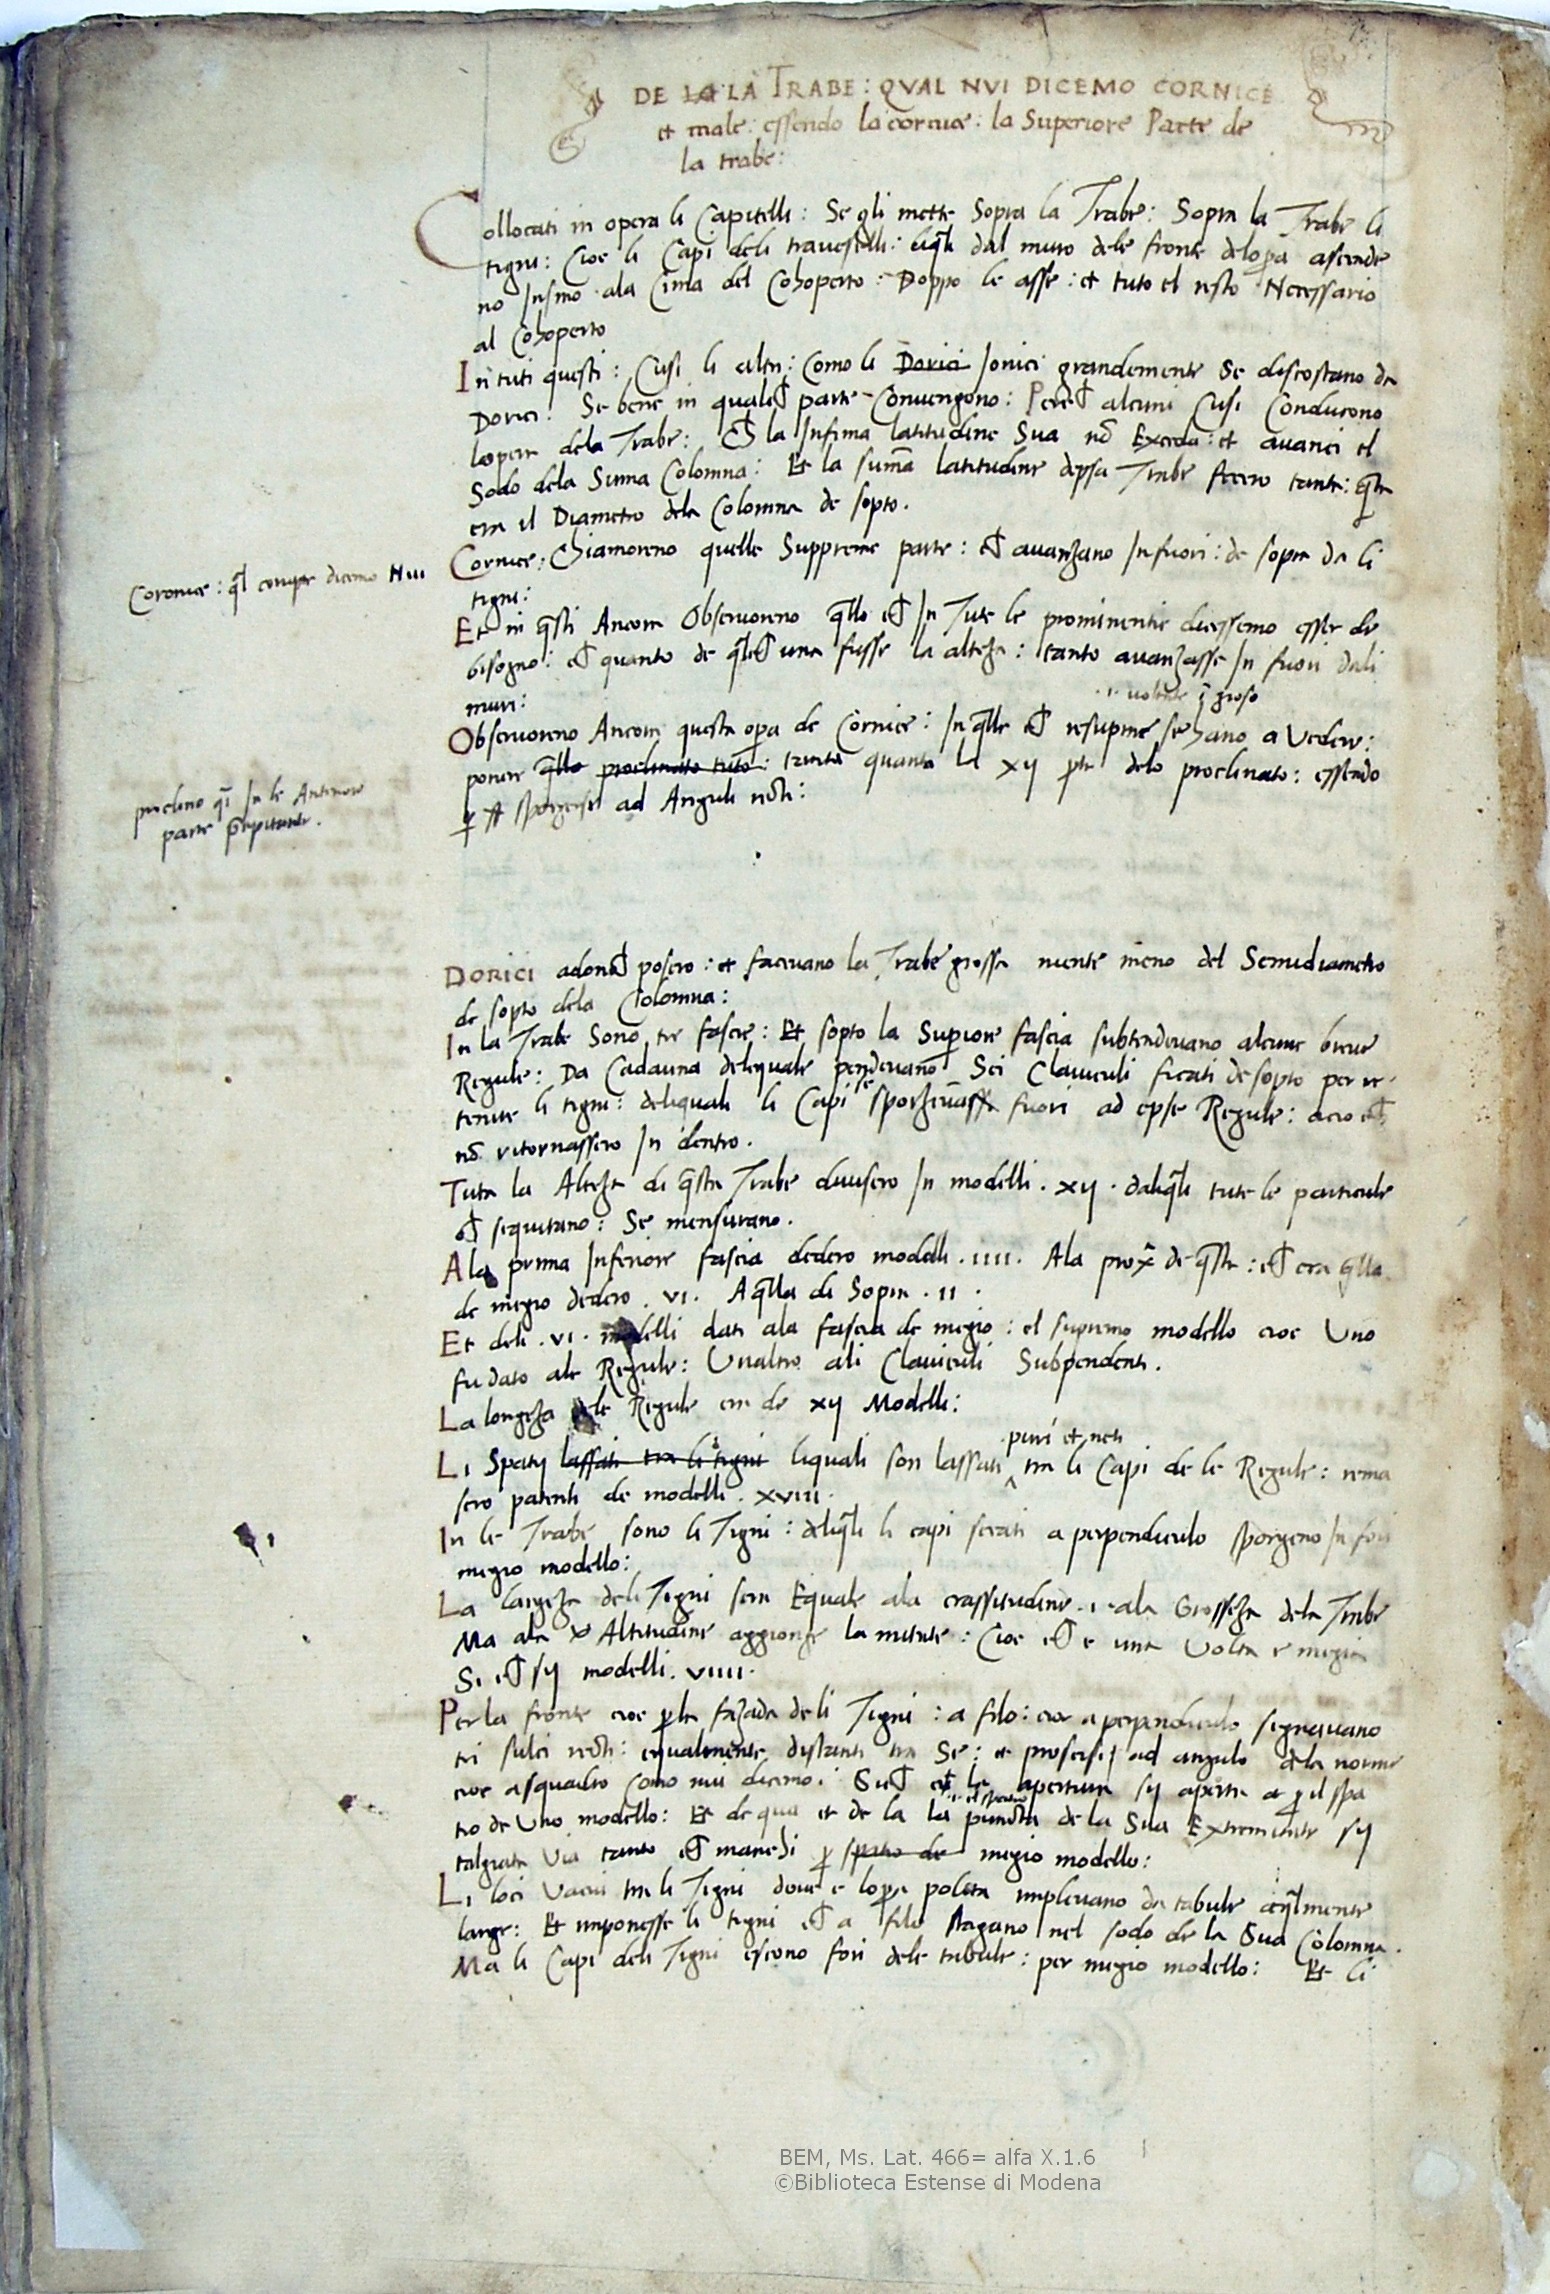 DE LA LA TRABE: QVAL NVI DICEMO CORNICE
et male: essendo la cornice: la Superiore Parte de
la trabe:
Collocati in opera li Capitelli: Se gli mette Sopra la Trabe: Sopra la Trabe li
tigni: Cioe li Capi deli travestelli: liqli dal muro dele fronte delopa ascende
no Insino ala Cima del Cohoperto: Doppo le asse: et tuto el resto Necessario
al Cohoperto
In tuti questi: Cusi li altri: Como li Dorici Ionici grandemente Se discostano da
Dorici: Se bene in qualch parte Convengono: Perch alcuni Cusi Conducono
lopera dela Trabe: Ch la Infima latitudine Sua nō Exceda: et avanci el
Sodo dela Suma Colomna: Et la sumā latitudine depsa Trabe fecero tanta: qta
era il Diametro dela Colomna de sopto.
Cornice: Chiamoreno quelle Suppreme parte: ch avanzano Infuori: de sopra da li
tigni:
Coronice: ql dicemo Nui
Et in qsti Ancora Observoreno qllo ch In Tute le prominentie dicessemo esser de
bisogno: ch quanto de qlch una fusse la alteza: tanto avanzasse In fuori dali
muri:
Observoreno Ancora questa opa de Cornice: In qlle ch resupine se hano a Vedere:
ponere qllo proclinato tuto: tanta quanta la xij pte delo proclinato: essendo
ad Anguli recti:
In le Anteriore
parte
DORICI adonch posero: et facevano la Trabe grossa niente meno del Semidiametro
de sopto dela Colomna:
In la Trabe Sono tre fascie: Et sopto la Supiore fascia subtendevano alcune breve
Regule: Da Cadauna delequale pendevano Sei Clavicoli ficati desopto per re-
tenere li tigni: deliquali li Capi se fuori ad epse Regule: acio ch
nō ritornassero In dentro.
Tuta la Alteza di qsta Trabe divisero In modelli . xij . daliqli tute le particule
ch sequitano: Se mensurano.
Ala prima Inferiore fascia dedero modelli . IIII. Ala prox̄ de qsta: ch era qlla
de megio dedero . VI. A qlla di Sopra . II .
Et deli . VI . modelli dati ala fascia de megio: el supremo modello cioe Uno
fu dato ale Regule: Unaltro ali Claviculi Subpendenti.
La longeza dele Regule era de xij Modelli:
puri et neti
Li Spatij lassati tra li tigni liquali son lassati tra li Capi de le Regule: rema
sero patenti de modelli . XVIII.
In le Trabe sono li Tigni: deliqli li capi serati a perpendiculo sporgeno In fori
megio modello:
La largeza deli Tigni sera Equale ala crassitudine .i. ala Grosseza dela Trabe
Ma ala Altitudine aggionge la mitate: Cioe ch e una Volta e megia
Si ch sij modelli . VIIII.
Per la fronte cioe pla fazada de li Tigni: a filo: cioe a perpendiculo segnavano
tri sulci recti: equalmente distanti tra Se: et proscisi ad angulo dela norma
cioe asquadro como nui dicemo: Sich ch la apertura sij aperta a p il spa
tio de Uno modello: Et de qua et de la la puncta de la Sua Extremitate sij
talgiata via tanto ch manchi p spatio de megio modello:
Li loci Vacui tra li Tigni dove e lopa polita implevano da tabule eqlmente
large: Et imponesse li tigni ch a filo stagano nel sodo de la Sua Colomna.
Ma li Capi deli Tigni escono fori dele tabule: per megio modello: Et li
BEM, Ms. Lat. 466= alfa X.1.6
©Biblioteca Estense di Modena